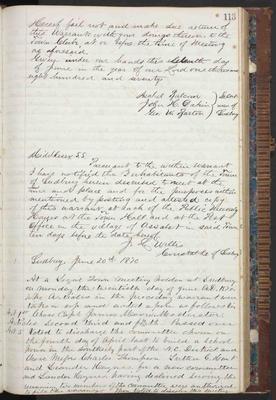 113
Hereof fail not and make due return of
this Warrant with your doings thereon to the
Town Clerk, at or before the time of Meeting
as aforesaid.
Given under our hands this day
of June in the year of our Lord one thousand
eight hundred and seventy.
Selectmen
John H. of
Geo. W. Sudbury
Middlesex SS.
Pursuant to the within Warrant
I have notified the Inhabitants of the Town
of Sudbury herein described to meet at the
time and place and for the purposes within
mentioned by posting and attested copy
of this warrant at each of the Public Meeting
Houses at the Town Hall and at the Post
Office in the village of Assabet in said Town
ten days before the date hereof
J. P. Willis
Constable of Sudbury
Sudbury, June 20th 1870
At a legal Town Meeting holden at Sudbury
on Monday the twentieth day of June A.D. 1870
the Articles in the preceding warrant were
taken up and acted upon as follows
Art 1st Chose Capt James Moore Moderator.
Articles Second Third and fifth Passed over
Art 4 Voted to discharge the Committee chosen on
the fourth day of April last to build a School
house in the Southerly part of the District and
Chose Messrs Charles Thompson Luther C. Cont
and Leander Haynes for a new committee
and Leander Haynes having declined serving the
remaining two members of the committee were authorized